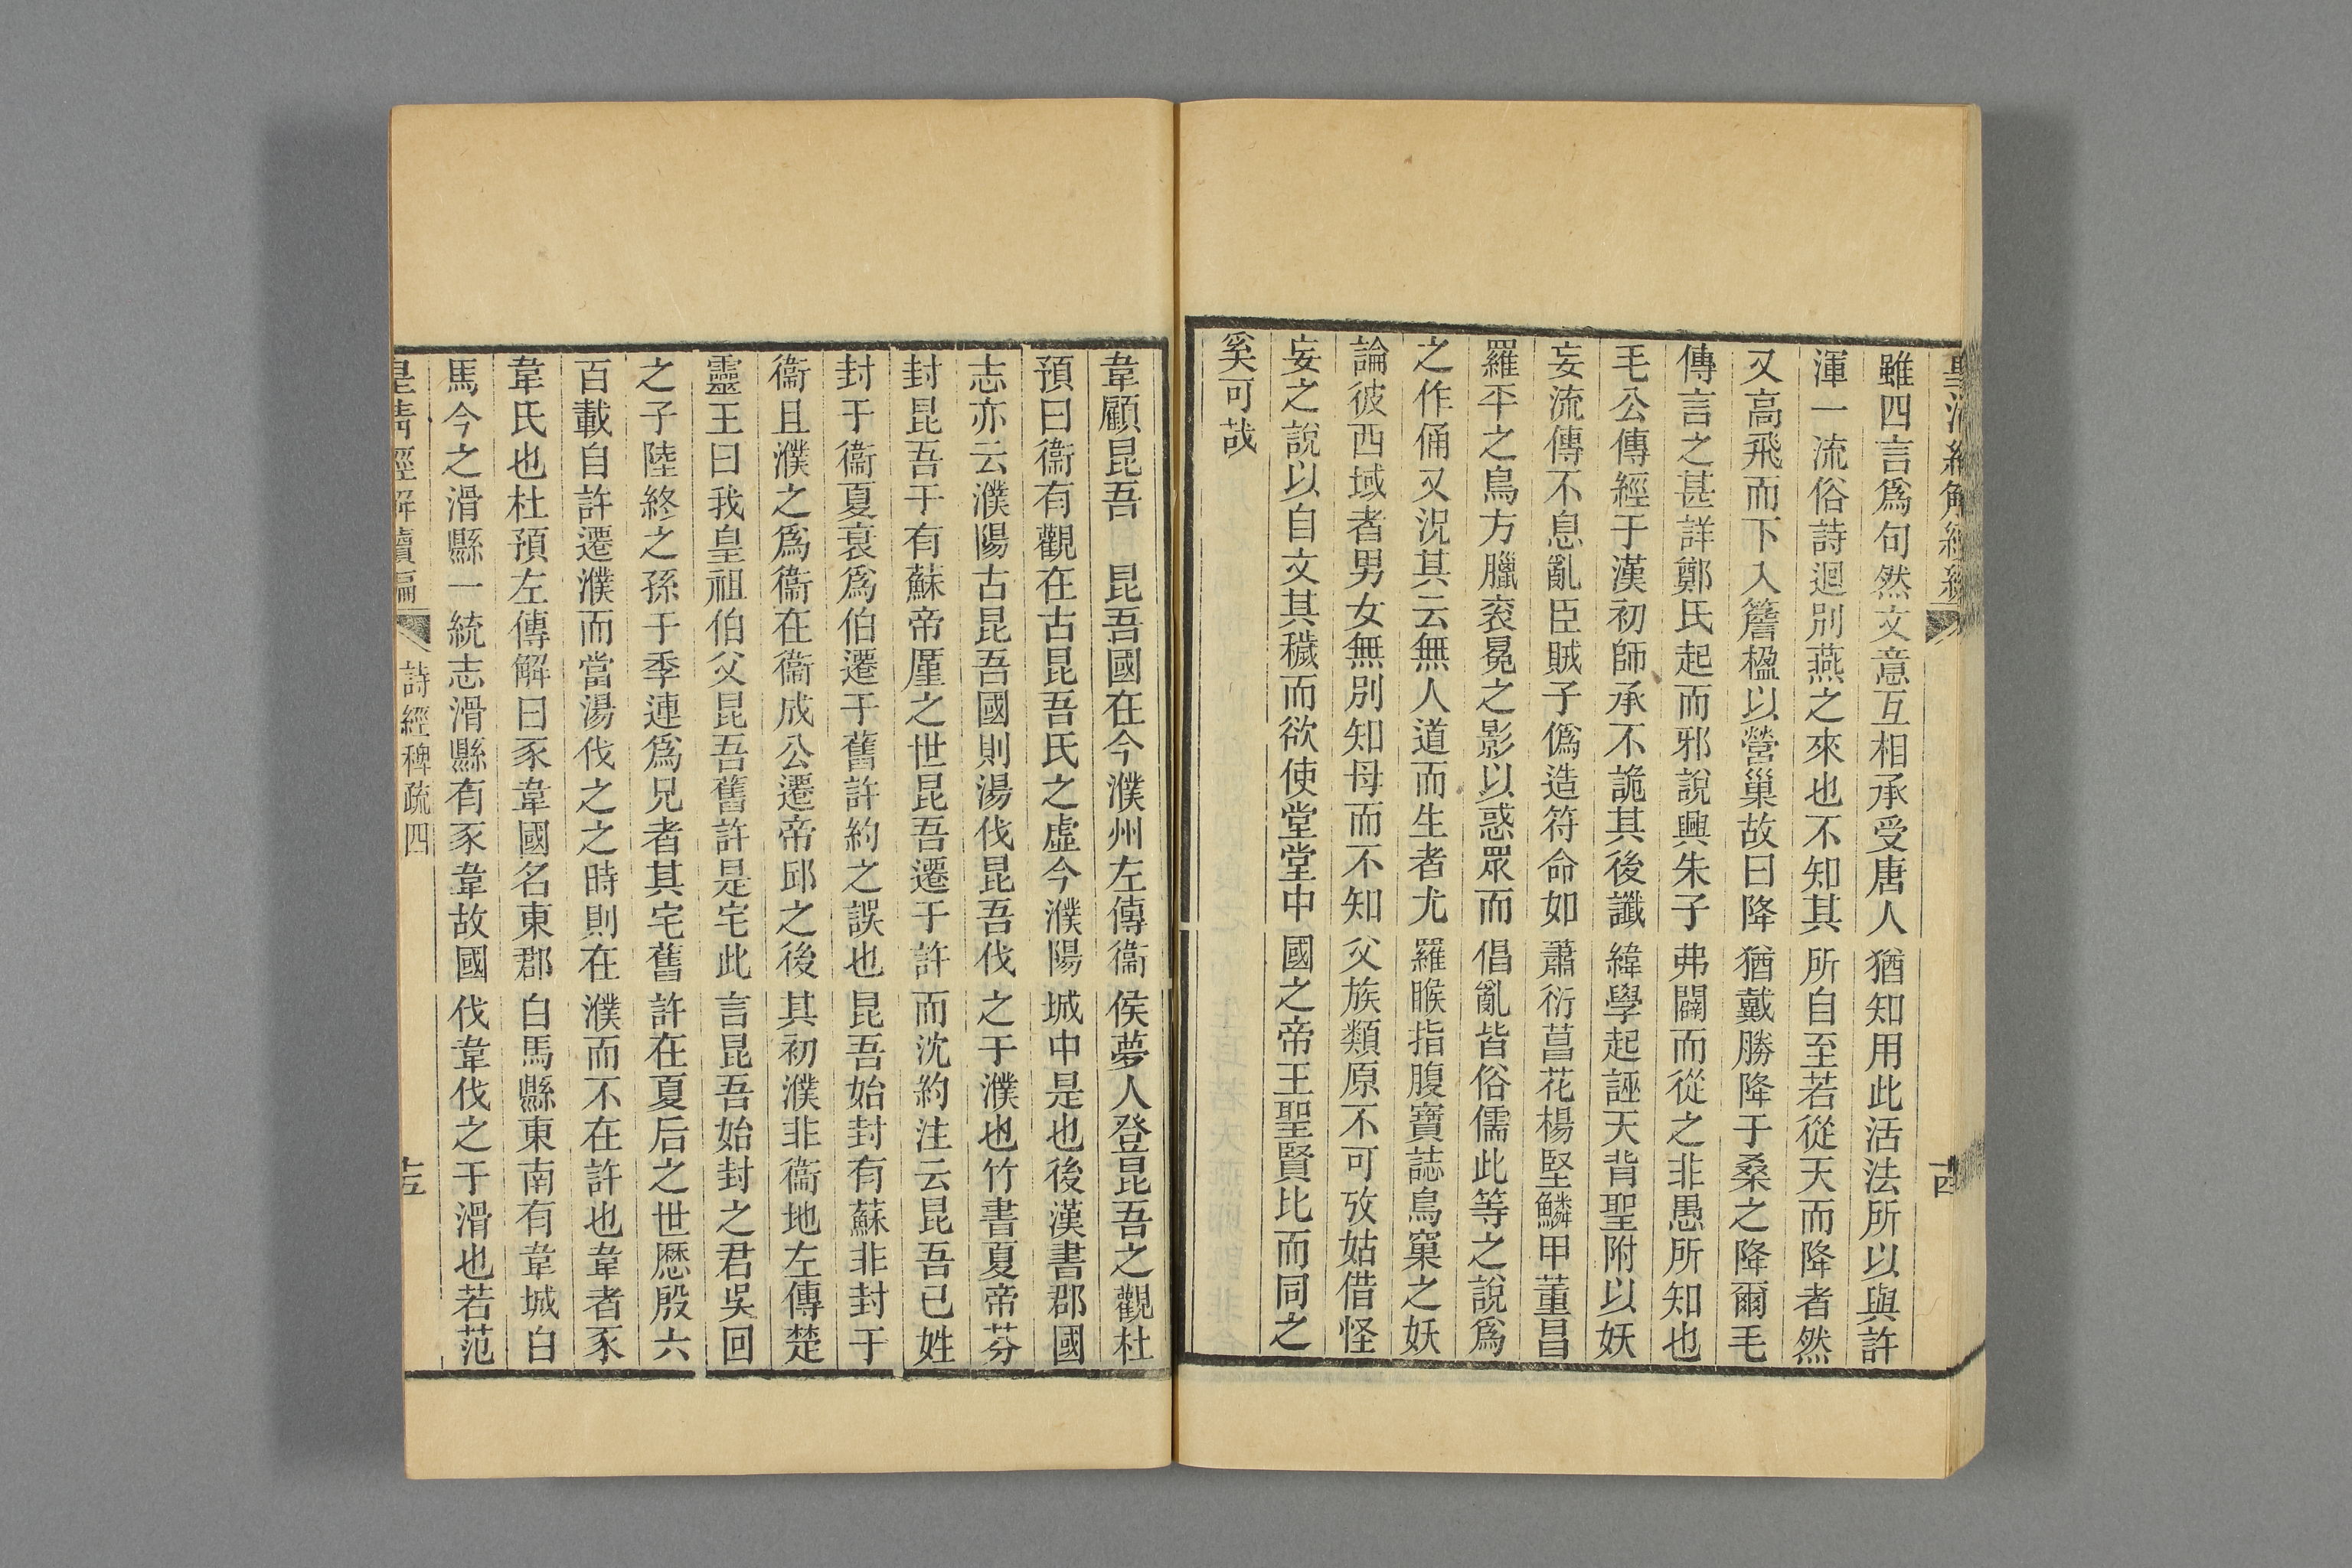 雖四言爲句然文意互相承受唐人猶知用此活法所以與許
渾一流俗詩迥別燕之來也不知其所自至若從天而降者然
又高飛而下入簷楹以營巢故曰降猶戴勝降于桑之降爾毛
傳言之甚詳鄭氏起而邪說興朱子弗闢而從之非愚所知也
毛公傳經于漢初師承不詭其後讖緯學起誣天背聖附以妖
妄流傳不息亂臣賊子僞造符命如蕭衍菖花楊堅鱗甲董昌
羅平之鳥方臘衮冕之影以惑眾而倡亂皆俗儒此等之說爲
之作俑又況其云無人道而生者尤羅睺指腹寶誌鳥窠之妖
論彼西域者男女無別知母而不知父族類原不可攷姑借怪
妄之說以自文其穢而欲使堂堂中國之帝王聖賢比而同之
奚可哉
韋顧昆吾　昆吾國在今濮州左傳衞侯夢人登昆吾之觀杜
預曰衞有觀在古昆吾氏之虛今濮陽城中是也後漢書郡國
志亦云濮陽古昆吾國則湯伐昆吾伐之于濮也竹書夏帝芬
封昆吾于有蘇帝厪之世昆吾遷于許而沈約注云昆吾己姓
封于衞夏衰爲伯遷于舊許約之誤也昆吾始封有蘇非封于
衞且濮之爲衞在衞成公遷帝邱之後其初濮非衞地左傳楚
靈王曰我皇祖伯父昆吾舊許是宅此言昆吾始封之君吳回
之子陸終之孫于季連爲兄者其宅舊許在夏后之世歷殷六
百載自許遷濮而當湯伐之之時則在濮而不在許也韋者豕
韋氏也杜預左傳解曰豕韋國名東郡白馬縣東南有韋城白
馬今之滑縣一統志滑縣有豕韋故國伐韋伐之于滑也若范
皇清經解續編
詩經稗疏四
十五